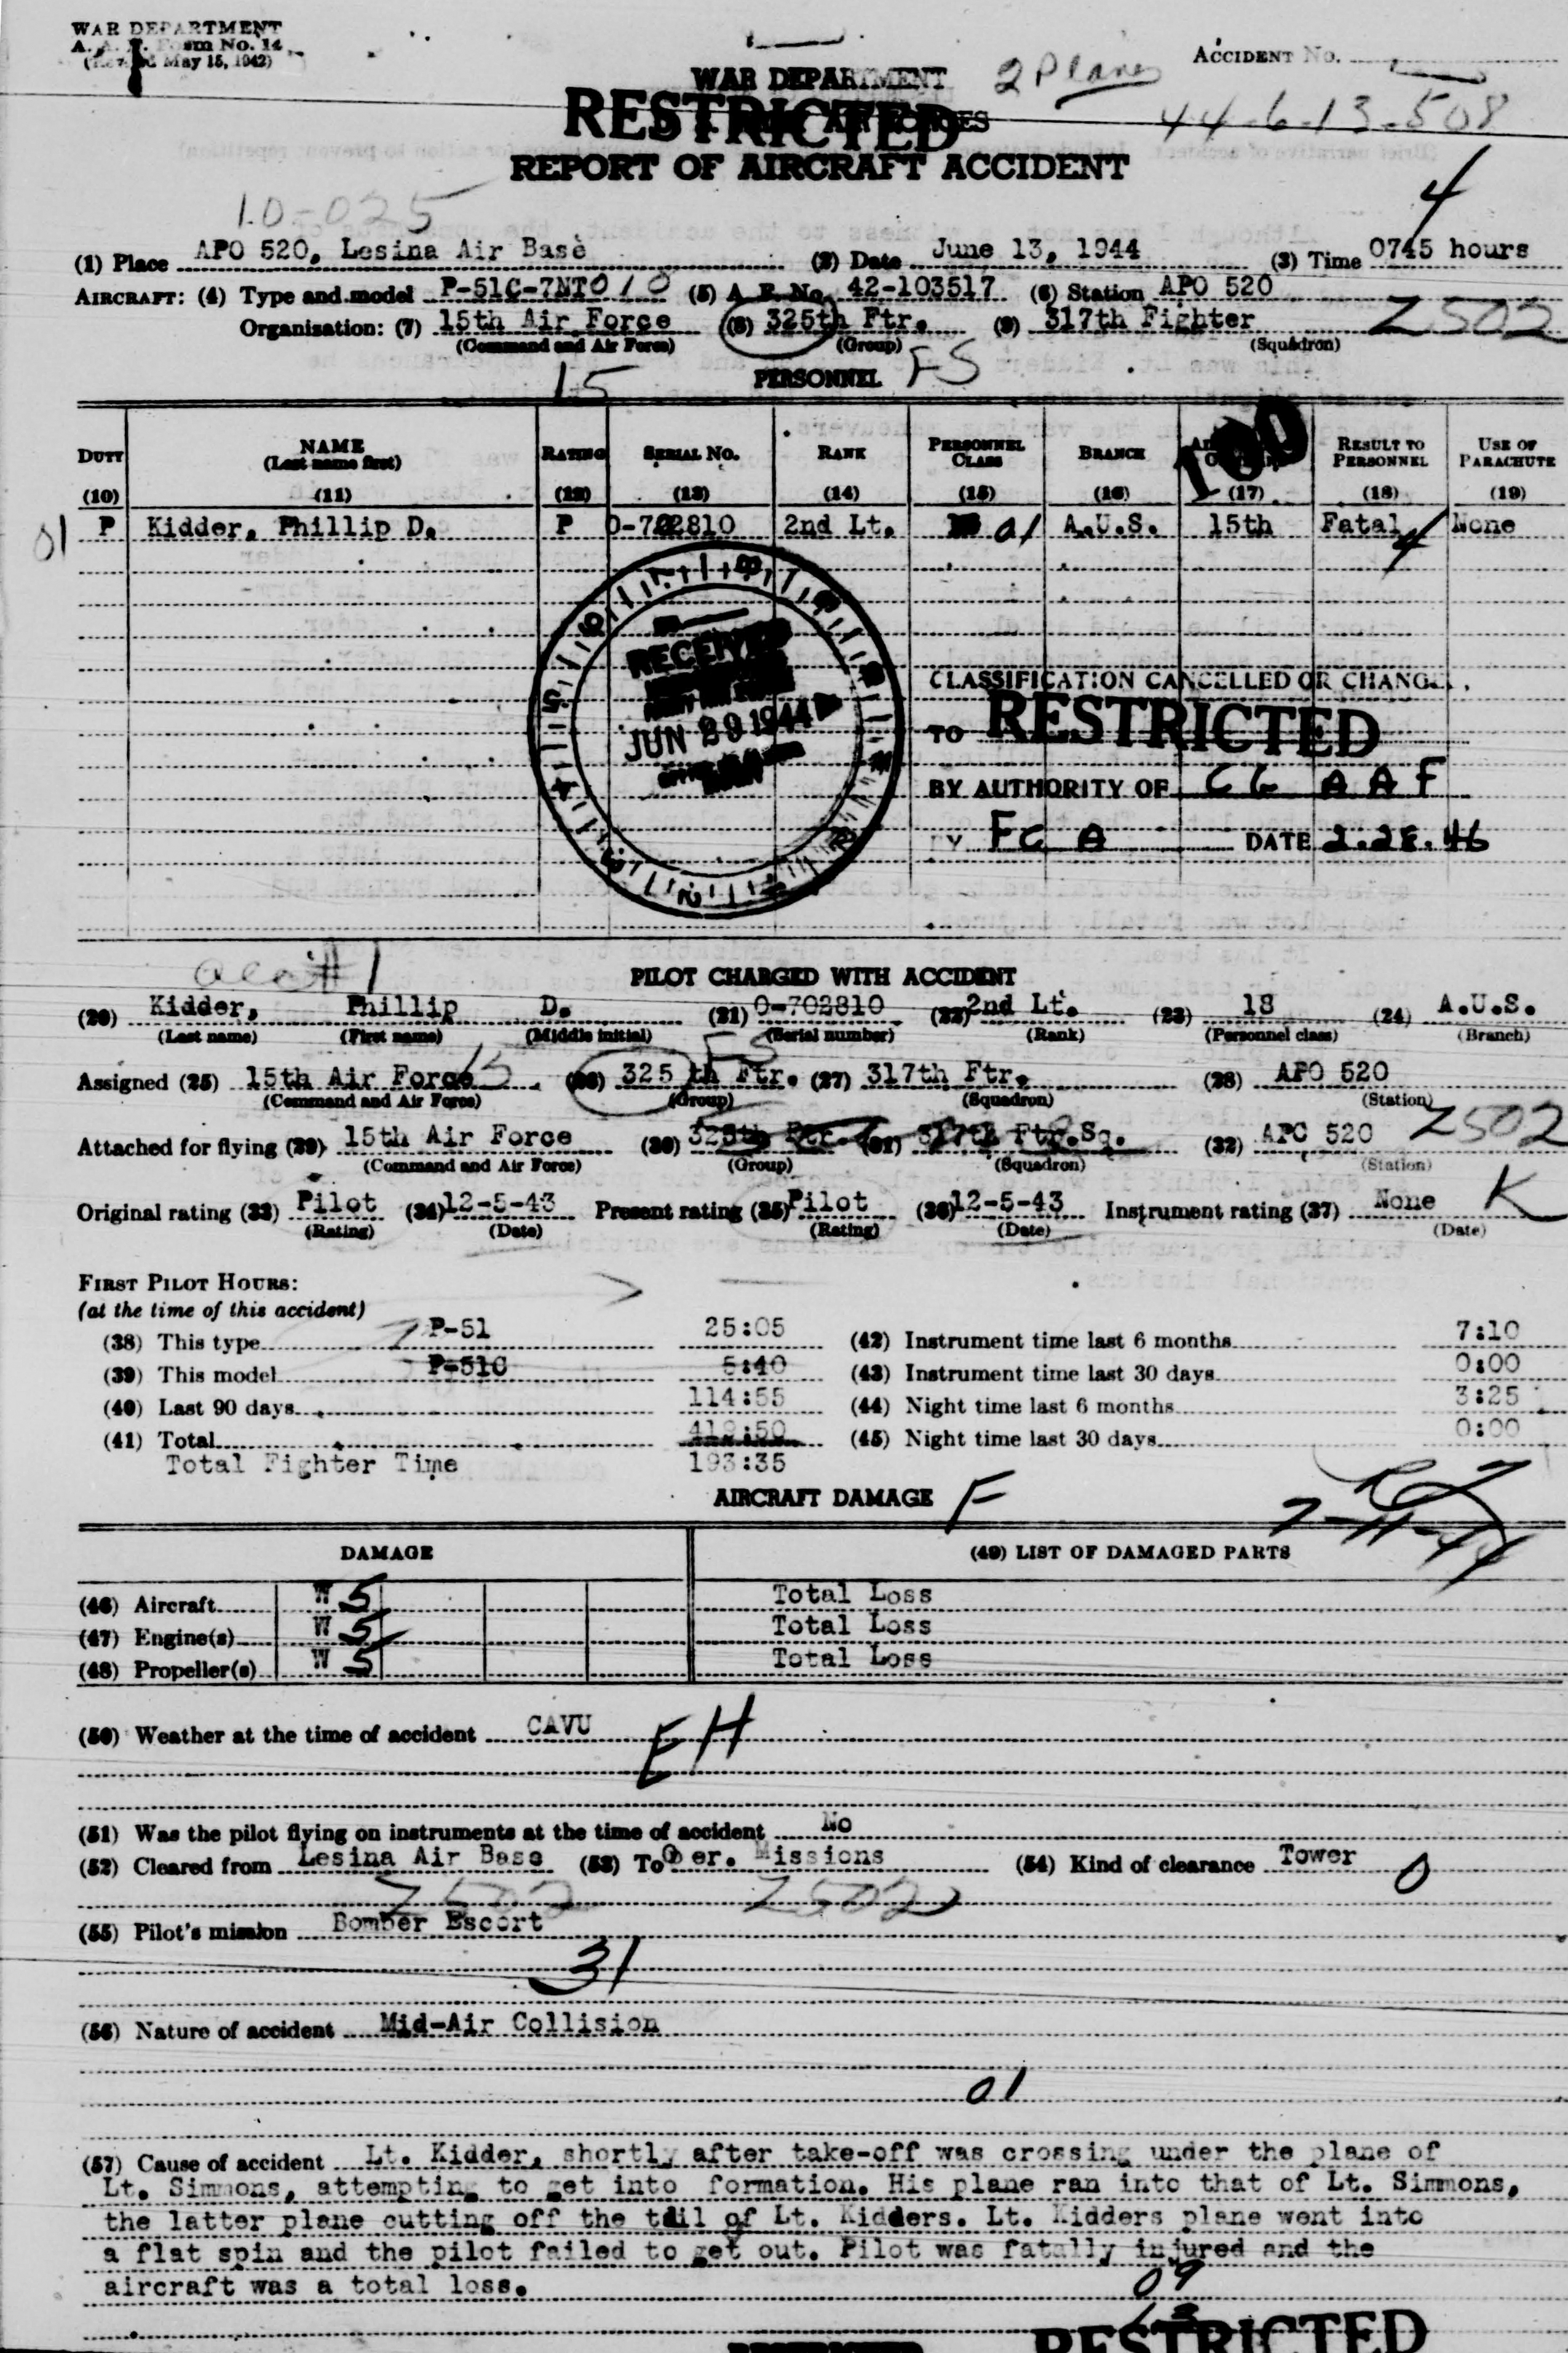 WAR DEPARTMENT
A. A. F. Form No. 14
(Revised May 15, 1942)
ACCIDENT No.
2 Planes
WAR DEPARTMENT
RESTRICTED
44-6-13-508
REPORT OF AIRCRAFT ACCIDENT
10-025
4
(1) Place APO 520, Lesina Air Base (2) Date June 13, 1944 (3) Time 0745 hours
AIRCRAFT: (4) Type and model P-51C-7NT 010 (5) A. F. No. 42-103517 (6) Station APO 520
Organization: (7) 15th Air Force (8) 325th Ftr. (9) 317th Fighter Z502
(Command and Air Force) (Group) (Squadron)
15 PERSONNEL FS
100
DUTY NAME RATING SERIAL No. RANK PERSONNEL BRANCH RESULT TO USE OF
(Last name first) CLASS PERSONNEL PARACHUTE
(10) (11) (12) (13) (14) (15) (16) (17) (18) (19)
01 P Kidder, Phillip D. P 0-702810 2nd Lt. 01 A.U.S. 15th Fatal 4 None
RECEIVED
JUN 29 1944
CLASSIFICATION CANCELLED OR CHANGED
TO RESTRICTED
BY AUTHORITY OF CG AAF
BY FC A DATE 2.28.46
acc #1
PILOT CHARGED WITH ACCIDENT
(20) Kidder, Phillip D. (21) 0-702810 (22) 2nd Lt. (23) 18 (24) A.U.S.
(Last name) (First name) (Middle initial) (Serial number) (Rank) (Personnel class) (Branch)
FS
Assigned (25) 15th Air Force 15 (26) 325 th Ftr. (27) 317th Ftr. (28) APO 520
(Command and Air Force) (Group) (Squadron) (Station)
Attached for flying (29) 15th Air Force (30) 325th Ftr. (31) 317th Ftr. Sq. (32) APO 520 Z502
(Command and Air Force) (Group) (Squadron) (Station)
Original rating (33) Pilot (34) 12-5-43 Present rating (35) Pilot (36) 12-5-43 Instrument rating (37) None K
(Rating) (Date) (Rating) (Date) (Date)
FIRST PILOT HOURS:
(at the time of this accident)
(38) This type P-51 25:05 (42) Instrument time last 6 months 7:10
(39) This model P-51C 5:40 (43) Instrument time last 30 days 0:00
(40) Last 90 days 114:55 (44) Night time last 6 months 3:25
(41) Total 419:50 (45) Night time last 30 days 0:00
Total Fighter Time 193:35
AIRCRAFT DAMAGE F
7-11-44
DAMAGE (49) LIST OF DAMAGED PARTS
(46) Aircraft W 5 Total Loss
(47) Engine(s) W 5 Total Loss
(48) Propeller(s) W 5 Total Loss
(50) Weather at the time of accident CAVU
EH
(51) Was the pilot flying on instruments at the time of accident No
(52) Cleared from Lesina Air Base (53) To Oper. Missions (54) Kind of clearance Tower 0
Z502 Z502
(55) Pilot's mission Bomber Escort
31
(56) Nature of accident Mid-Air Collision
01
(57) Cause of accident Lt. Kidder, shortly after take-off was crossing under the plane of
Lt. Simmons, attempting to get into formation. His plane ran into that of Lt. Simmons,
the latter plane cutting off the tail of Lt. Kidders. Lt. Kidders plane went into
a flat spin and the pilot failed to get out. Pilot was fatally injured and the
aircraft was a total loss.
09
RESTRICTED